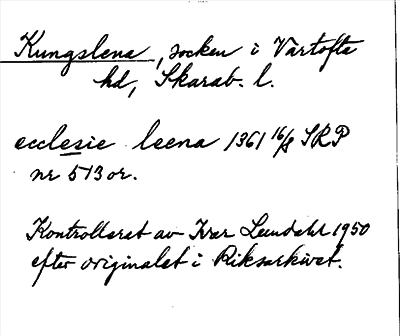 Kungslena, socken i Vartofta
hd, Skarab. l.
ecclesie leena 1361 16/8 SRP
nr 513 or.
Kontrollerat av Ivar Lundahl 1950
efter originalet i Riksarkivet.